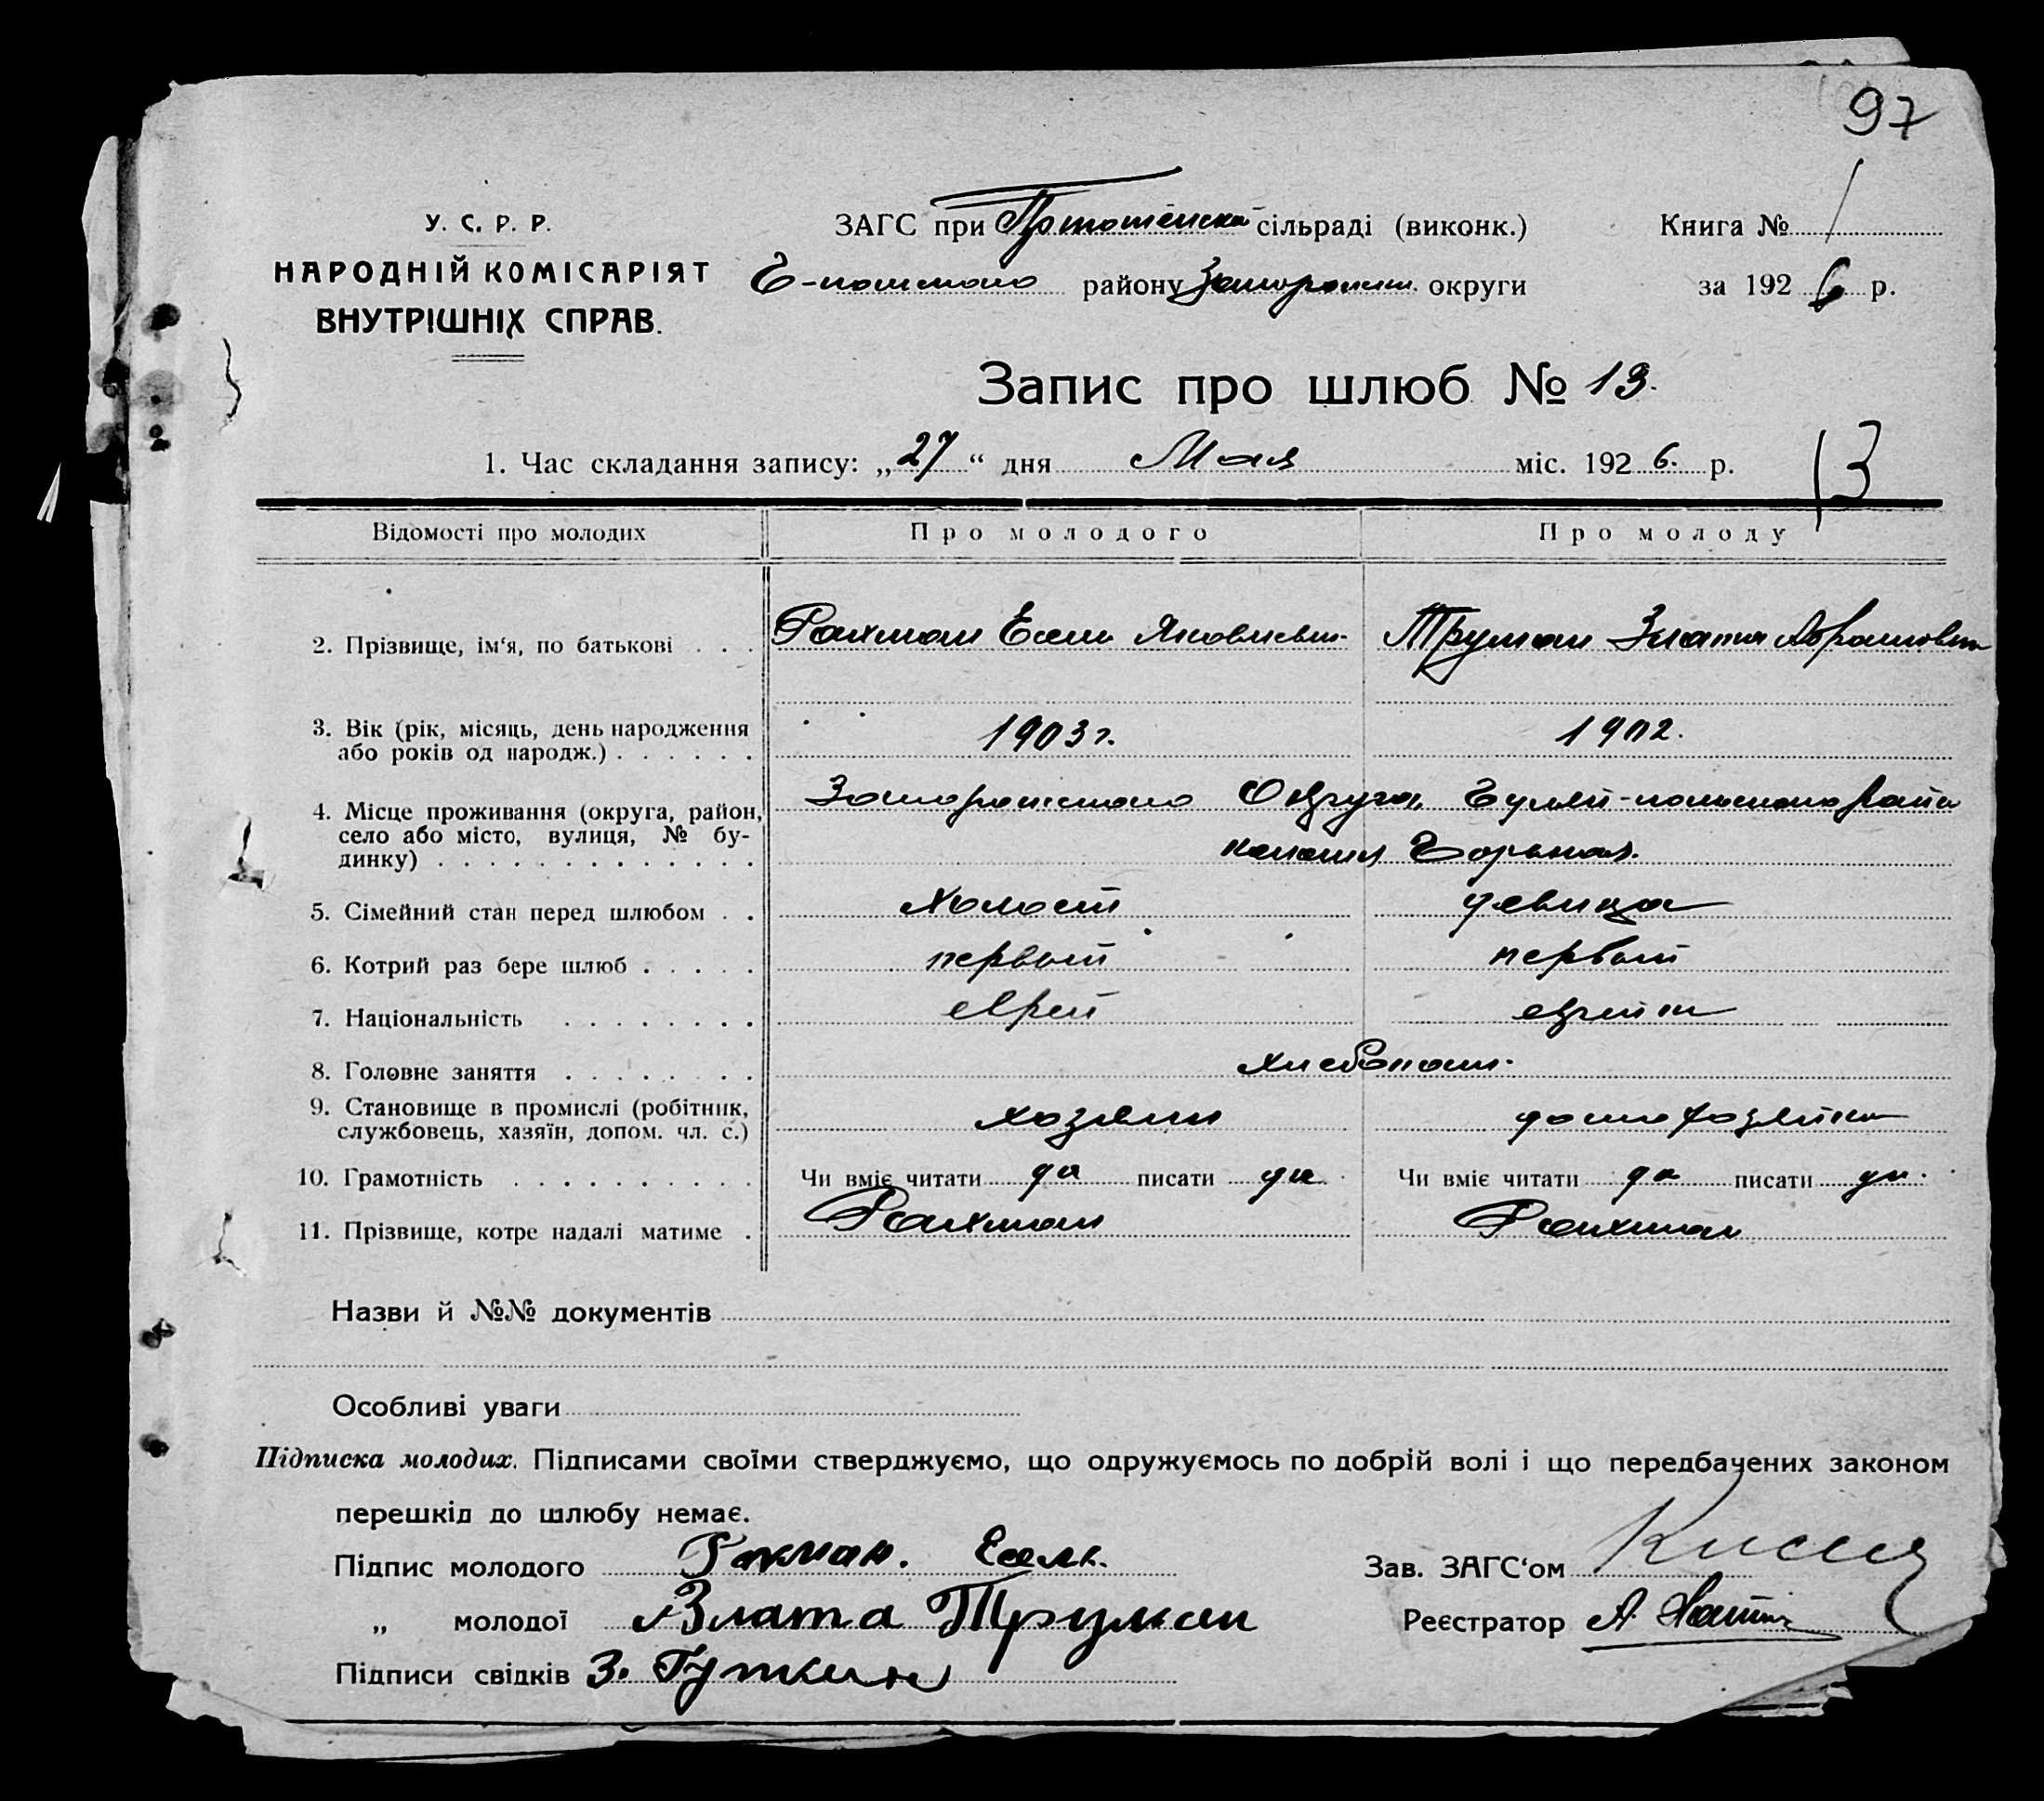 97
У. С. Р. Р.
НАРОДНІЙ КОМІСАРІЯТ
ВНУТРІШНІХ СПРАВ.
ЗАГС при сільраді (виконк.)
району округи
Книга № 1
за 1926 р.
Запис про шлюб № 13.
1. Час складання запису: „27“ дня Мая міс. 1926. р.
13
Відомості про молодих Про молодого Про молоду
2. Прізвище, ім‘я, по батькові . . . Рахман Есель Яковлевич Труман Злата Абрамовна
3. Вік (рік, місяць, день народження
або років од народж.) . . . . . . 1903 г. 1902.
4. Місце проживання (округа, район,
село або місто, вулиця, № бу-
динку) . . . . . . . . . . . . .
Запорожского Округа, Гуляй-польского района
колония Горькая.
5. Сімейний стан перед шлюбом . . холост девица
6. Котрий раз бере шлюб . . . . . первый первый
7. Національність . . . . . . . . еврей еврейка
8. Головне заняття . . . . . . . . хлебопаш.
9. Становище в промислі (робітник,
службовець, хазяїн, допом. чл. с.) хозяин домохозяйка
10. Грамотність . . . . . . . . . . Чи вміє читати да писати да Чи вміє читати да писати да.
11. Прізвище, котре надалі матиме . Рахман Рахман
Назви й №№ документів
Особливі уваги
Підписка молодих. Підписами своїми стверджуємо, що одружуємось по добрій волі і що передбачених законом
перешкід до шлюбу немає.
Підпис молодого Рахман. Есель.
„ молодої Злата Труман
Підписи свідків З. Гуткин
Зав. ЗАГС‘ом
Реєстратор А.